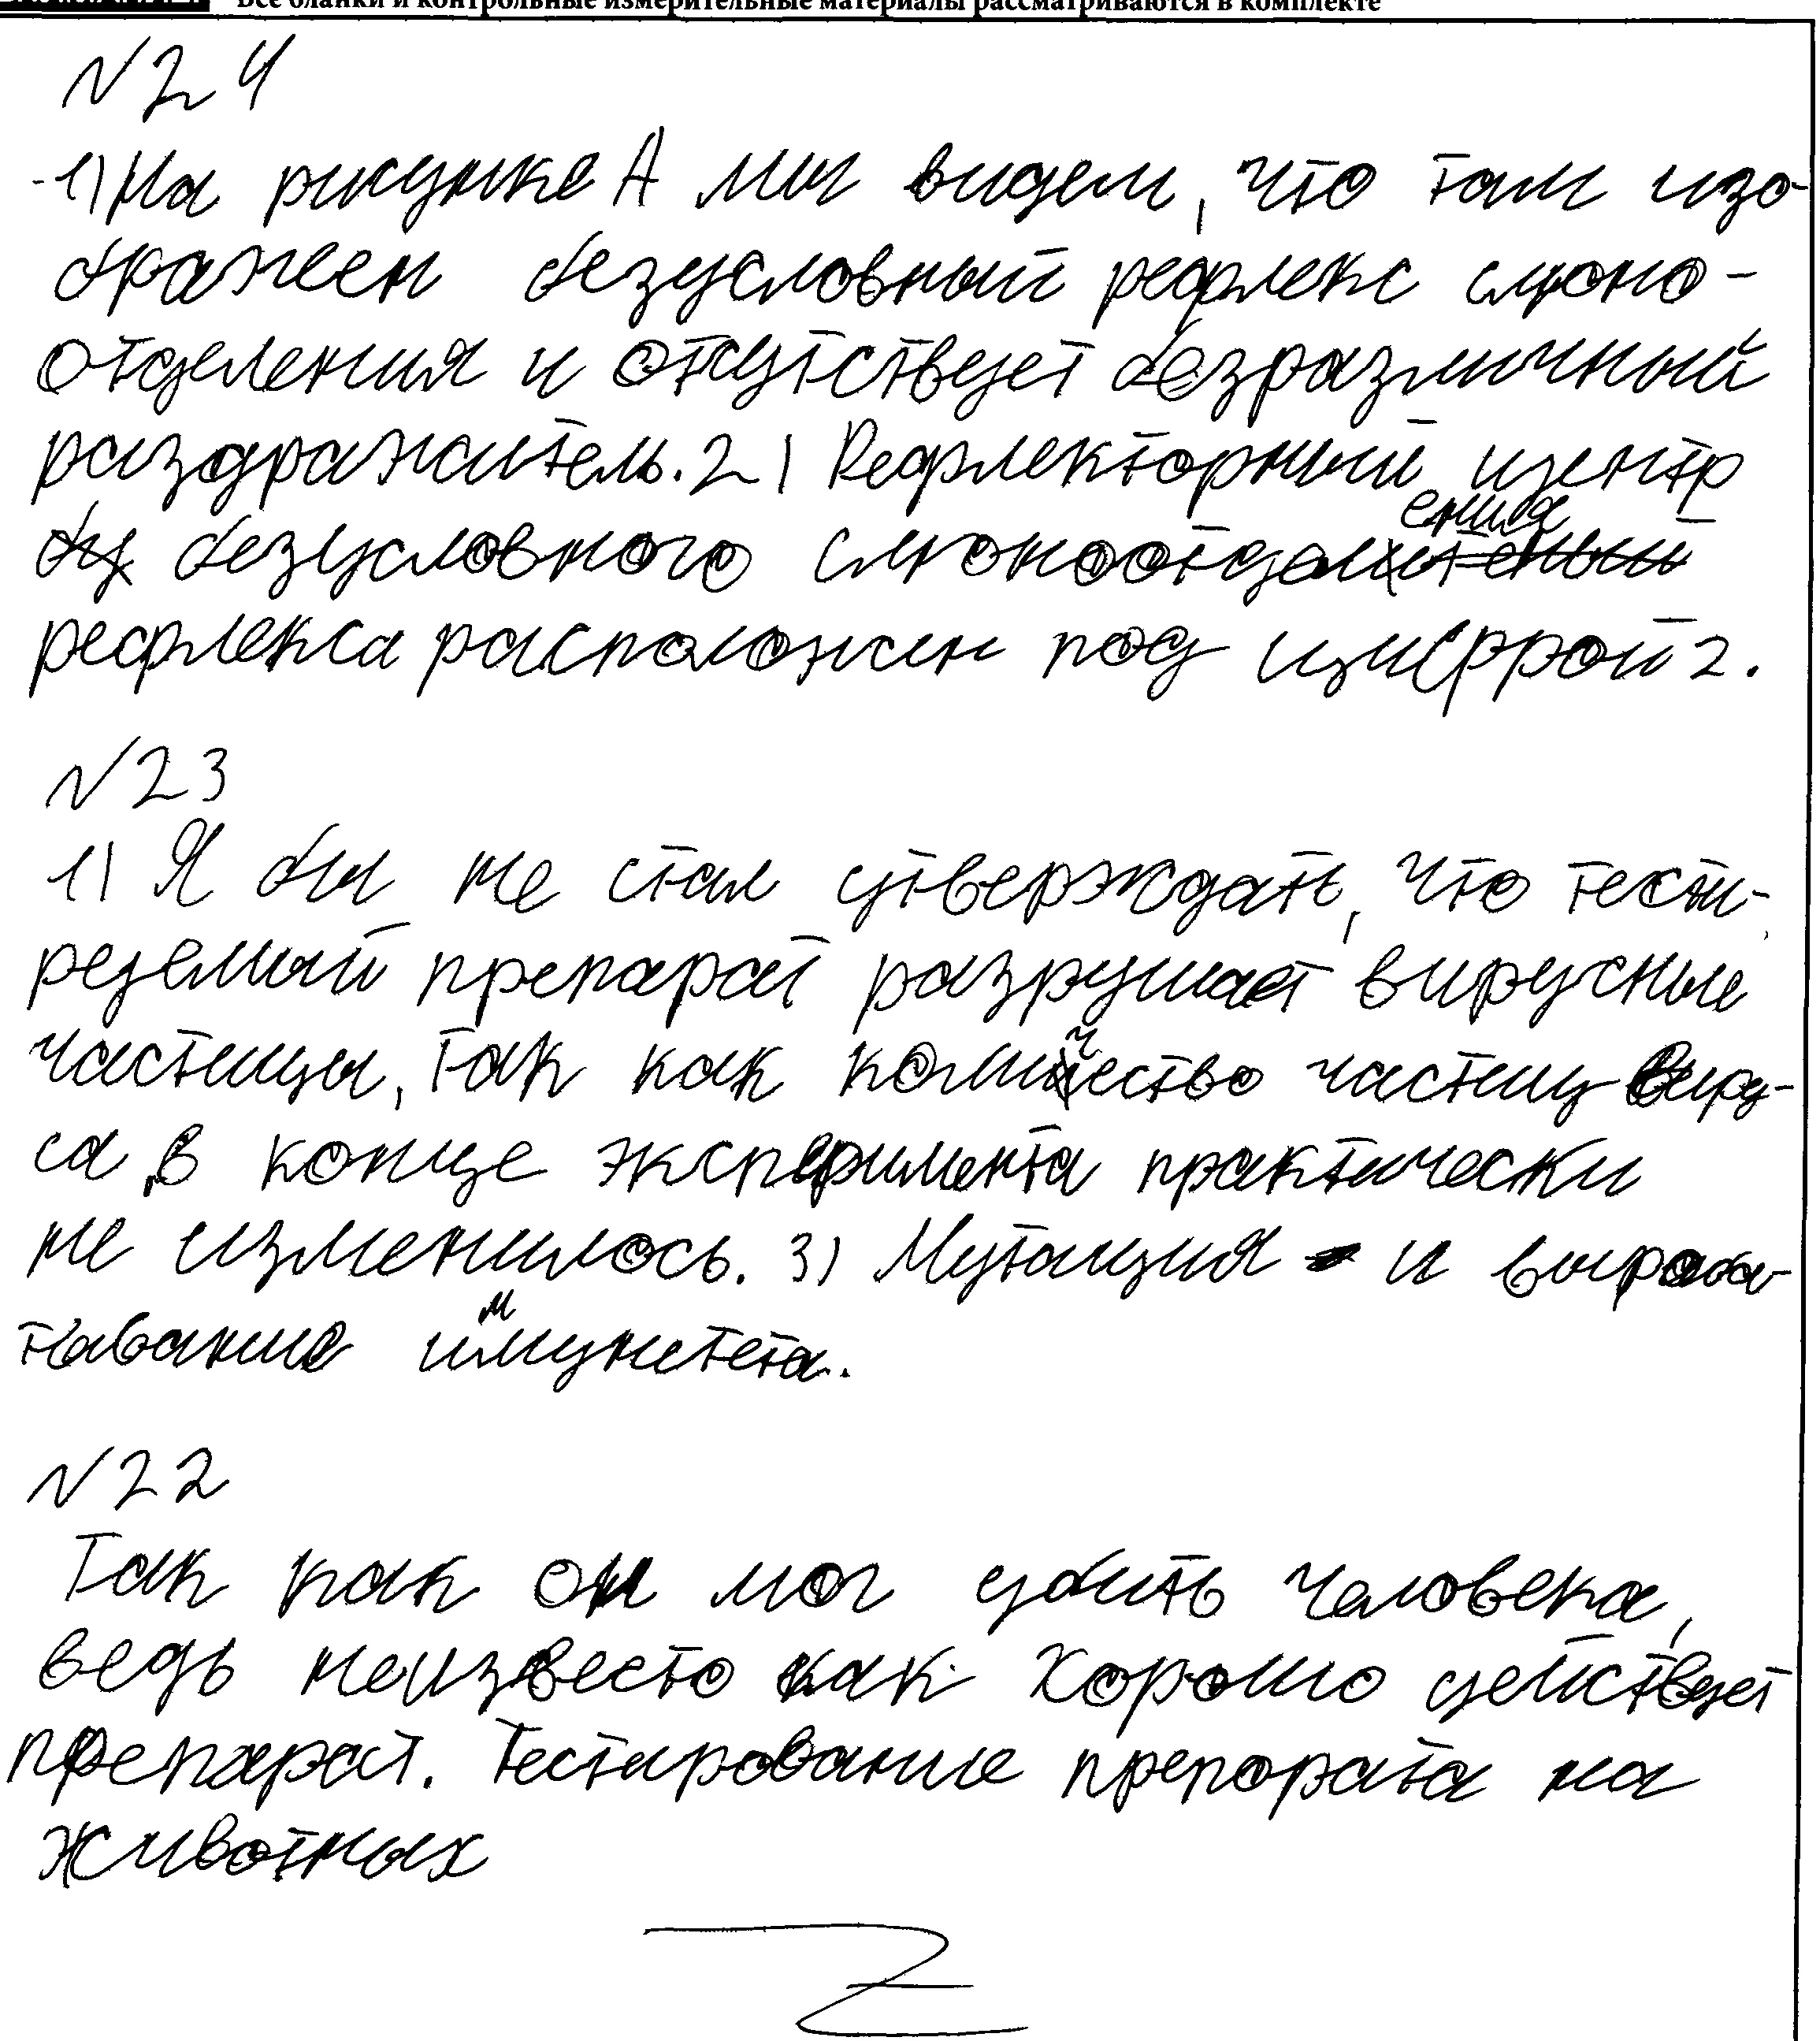 Все бланки и контрольные измерительные материалы рассматриваются в комплекте
№24
1) На рисунке А мы видем, что там изо-
бражен безусловный рефлекс слюно-
отделения и отсутствует безразличный
раздражитель. 2) Рефлекторный центр
безусловного слюноотделения
рефлекса расположен под цифрой 2.
№23
1) Я бы не стал утверждать, что тести-
руемый препарат разрушает вирусные
частицы, так как количество частиц виру-
са, в конце эксперимента практически
не изменилось. 3) Мутация и вырооа-
тывание иммунитета.
№22
Так как он мог убить человека,
ведь неизвесто как хорошо действует
препарат. Тестирование препората на
животных
Z